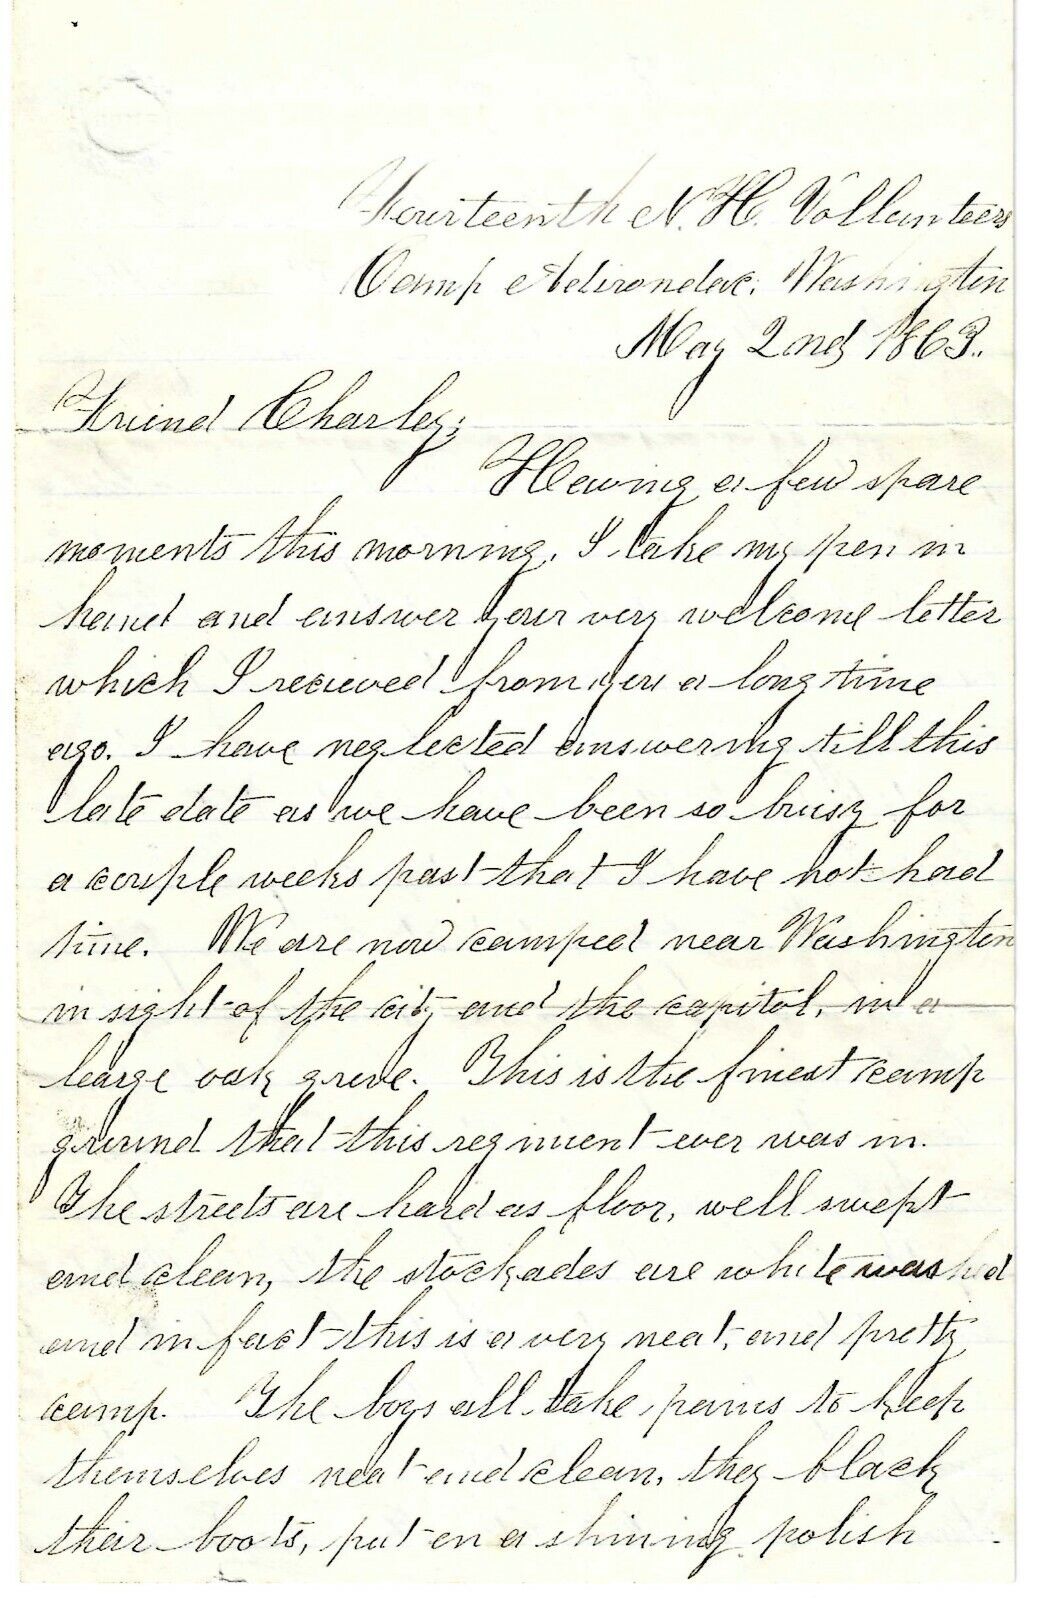 Fourteenth N. H. Vollunteers
Camp Adirondac, Washington
May 2nd, 1863.
Friend Charley;
Having a few spare
moments this morning, I take my pen in
hand and answer your very welcome letter
which I recieved from you a long time
ago. I have neglected answering till this
late date as we have been so buisy for
a couple weeks past that I have not had
time. We are now camped near Washington
in sight of the city and the capitol, in a
large oak grove. This is the finest camp
ground that this regiment ever was in.
The streets are hard as floor, well swept
and clean, the stockades are white washed
and in fact this is a very neat, and pretty
camp. The boys all take pains to keep
themselves neat and clean, they black
their boots, put on a shining polish